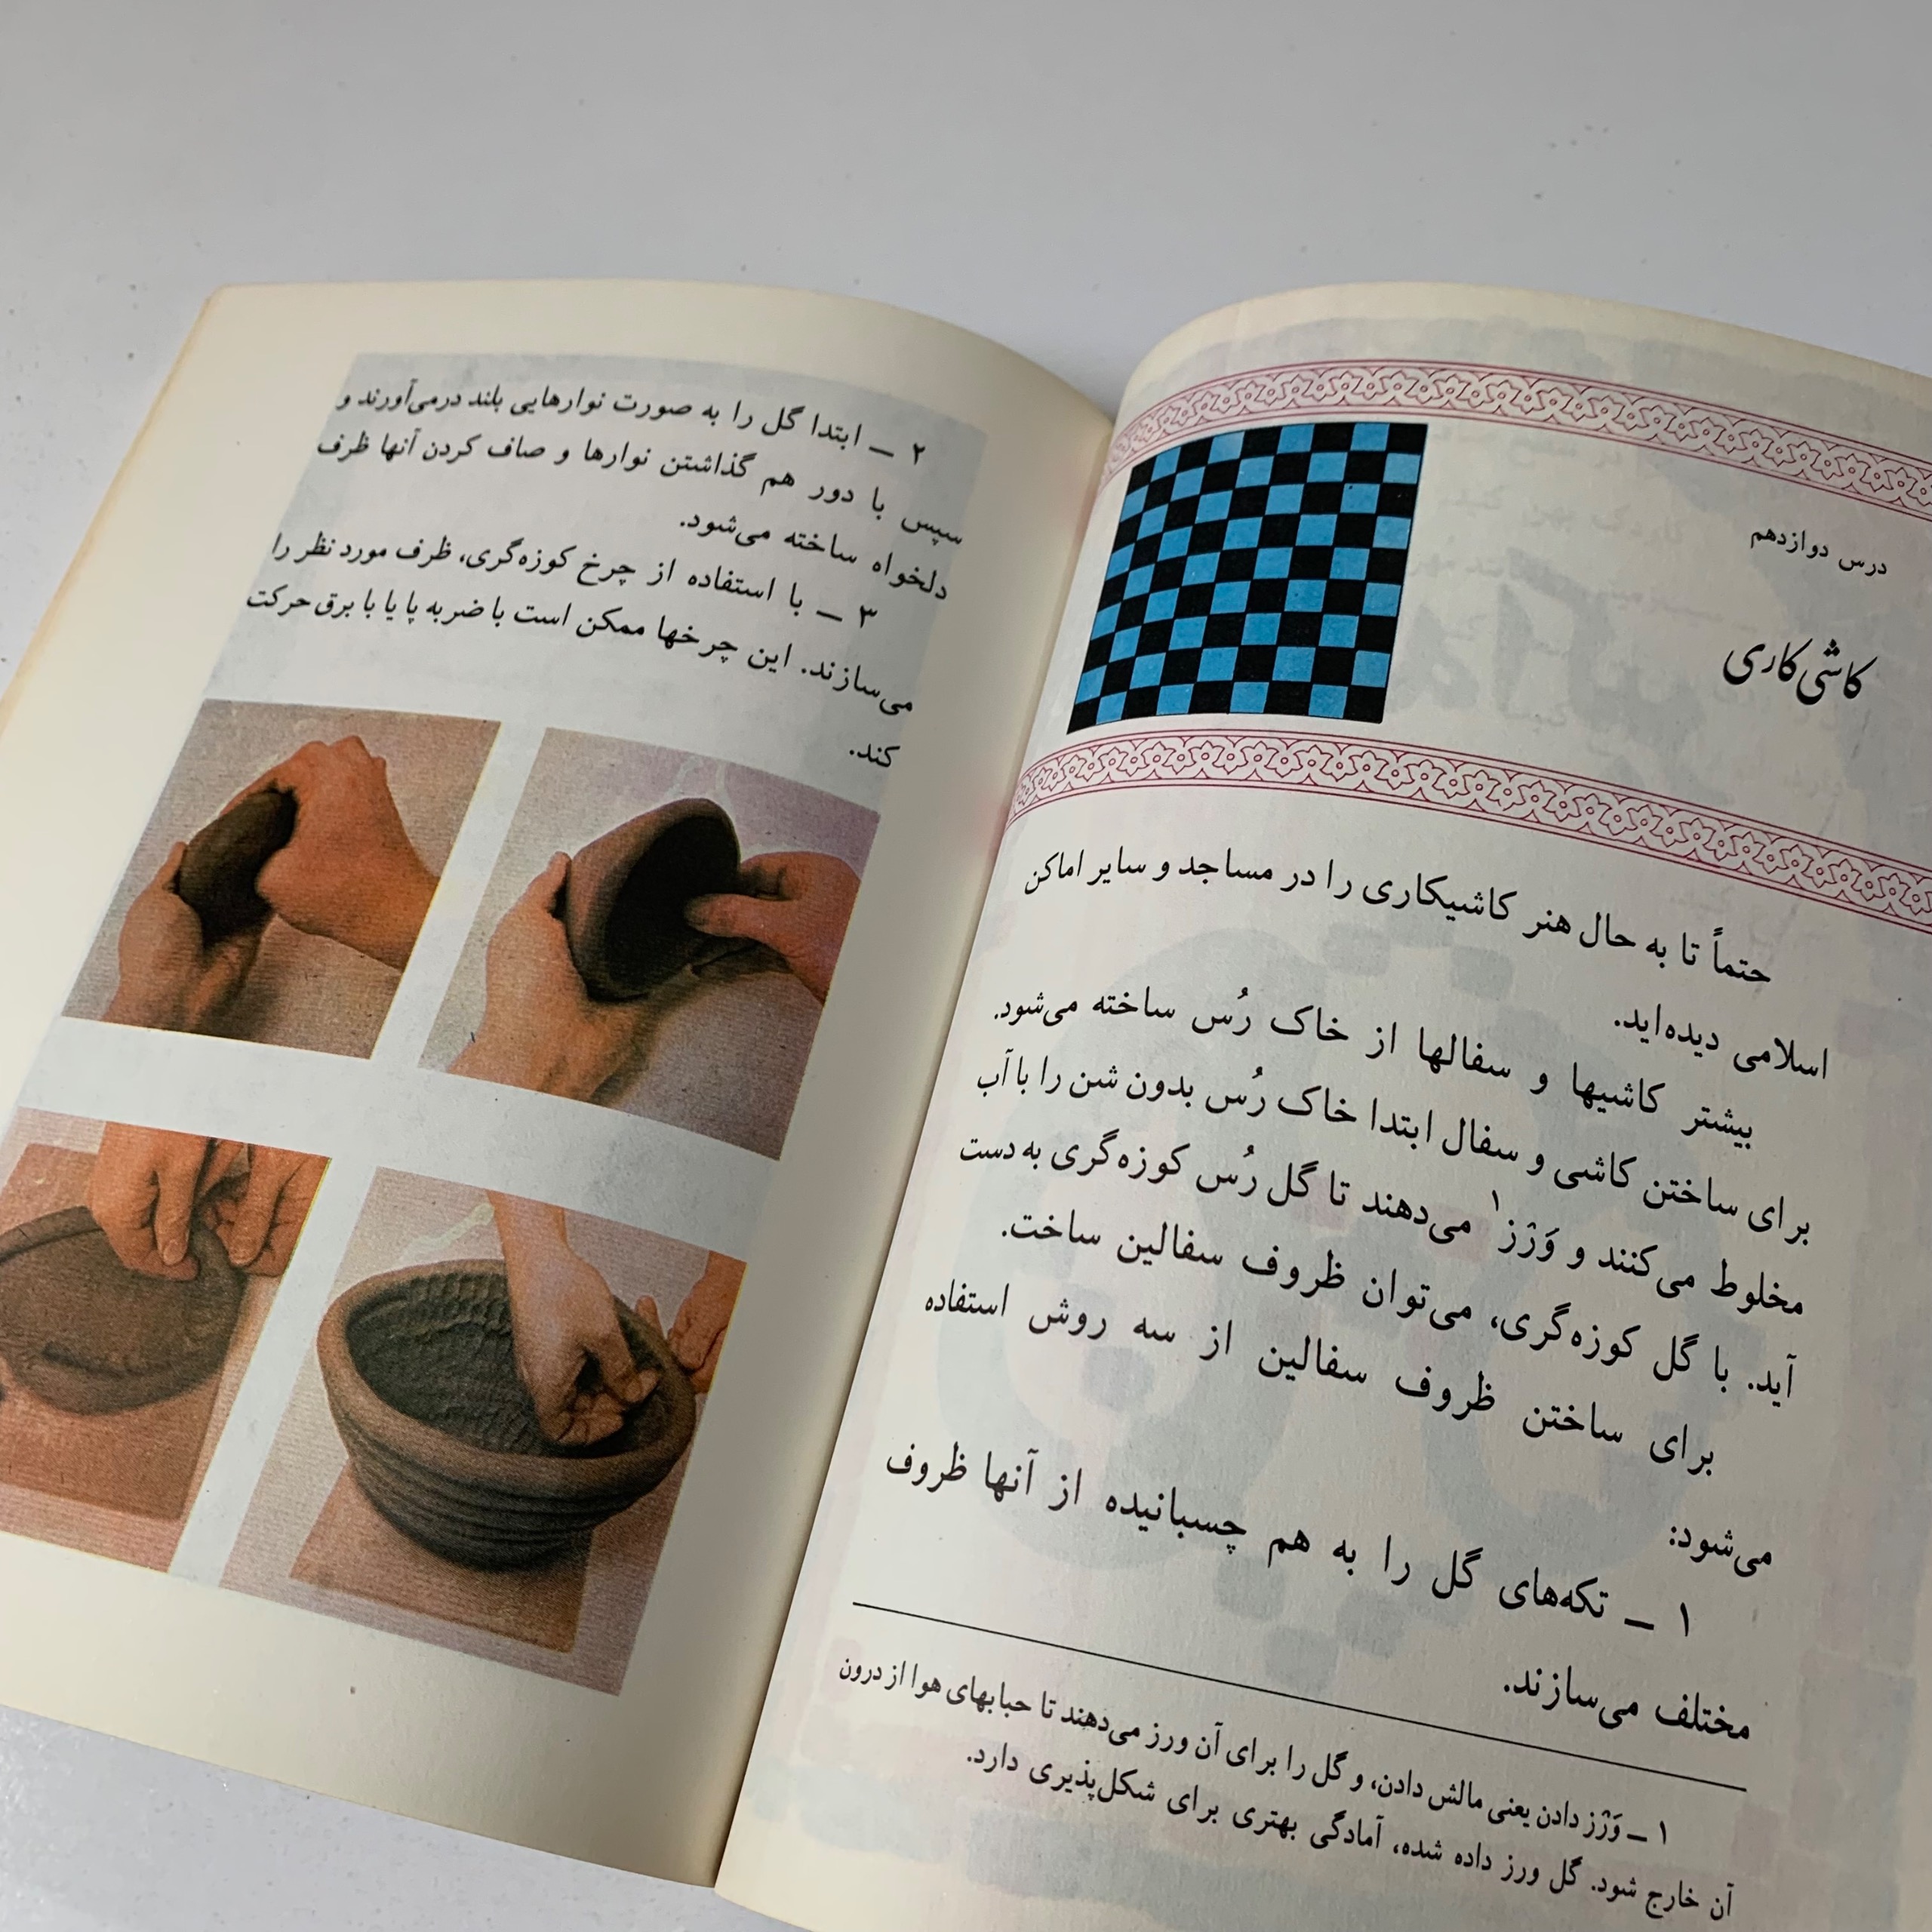 درس دوازدهم
کاشی‌کاری
حتماً تا به حال هنر کاشیکاری را در مساجد و سایر اماکن
اسلامی دیده‌اید.
بیشتر کاشیها و سفالها از خاک رُس ساخته می‌شود.
برای ساختن کاشی و سفال ابتدا خاک رُس بدون شن را با آب
مخلوط می‌کنند و وَرْز۱ می‌دهند تا گل رُس کوزه‌گری به دست
آید. با گل کوزه‌گری، می‌توان ظروف سفالین ساخت.
برای ساختن ظروف سفالین از سه روش استفاده
می‌شود:
۱ – تکه‌های گل را به هم چسبانیده از آنها ظروف
مختلف می‌سازند.
۱ – وَرْز دادن یعنی مالش دادن، و گل را برای آن ورز می‌دهند تا حبابهای هوا از درون
آن خارج شود. گل ورز داده شده، آمادگی بهتری برای شکل‌پذیری دارد.
۲ – ابتدا گل را به صورت نوارهایی بلند درمی‌آورند و
سپس با دور هم گذاشتن نوارها و صاف کردن آنها ظرف
دلخواه ساخته می‌شود.
۳ – با استفاده از چرخ کوزه‌گری، ظرف مورد نظر را
می‌سازند. این چرخها ممکن است با ضربه پا یا با برق حرکت
کند.